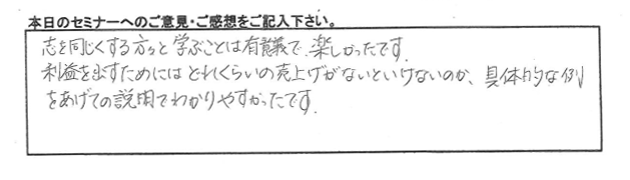 本日のセミナーへのご意見・ご感想をご記入下さい。
志を同じくする方々と学ぶことは有意義で、楽しかったです。
利益を出すためにはどれくらいの売上げがないといけないのか、具体的な例
をあげての説明でわかりやすかったです。